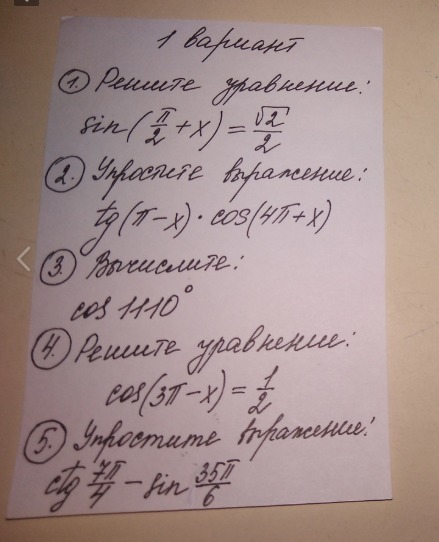 1 вариант
1. Решите уравнение:
sin(π/2 + x) = √2/2
2. Упростите выражение:
tg(π − x) · cos(4π + x)
3. Вычислите:
cos 1110°
4. Решите уравнение:
cos(3π − x) = 1/2
5. Упростите выражение:
ctg 7π/4 − sin 35π/6